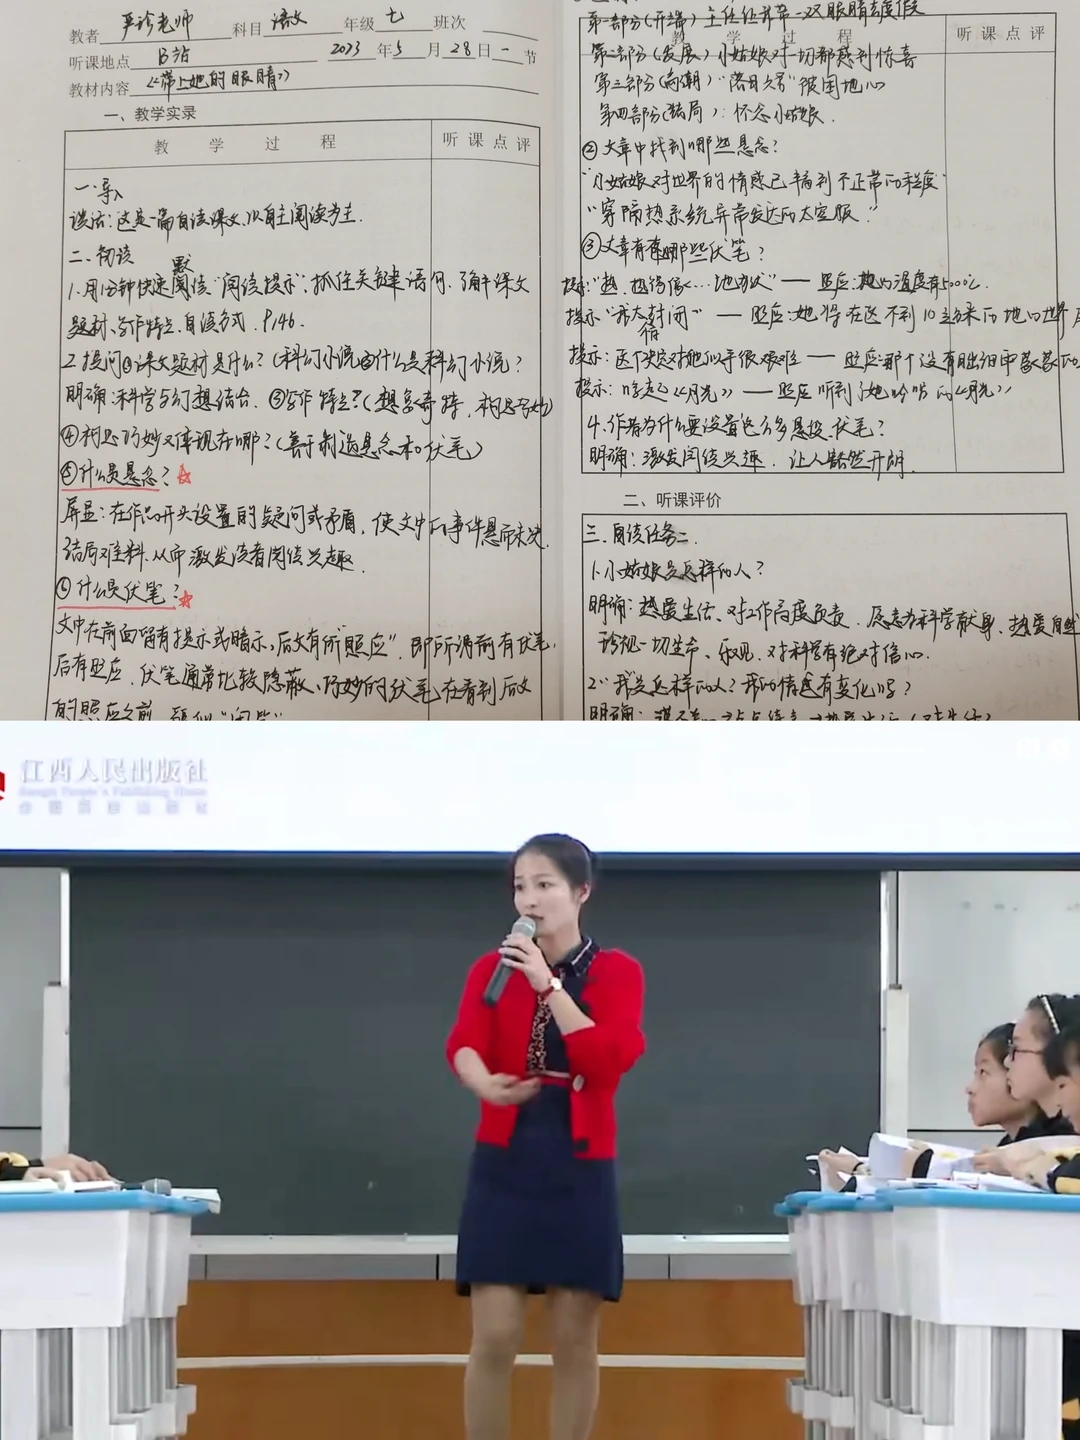 教者 严珍老师 科目 语文 年级 七 班次
听课地点 B站 2023 年 5 月 28 日 一 节
教材内容 《带上她的眼睛》
一、教学实录
教 学 过 程 听 课 点 评
一.导入
谈话:这是一篇自读课文,以自主阅读为主.
二、初读
默
1.用1分钟快速阅读“阅读提示”,抓住关键语句,了解课文
题材、写作特点、自读方式.P146.
2.提问①课文题材是什么?(科幻小说)②什么是科幻小说?
明确:科学与幻想结合.③写作特点?(想象奇特,构思巧妙)
④构思巧妙又体现在哪?(善于制造悬念和伏笔)
⑤什么是悬念?☆
屏显:在作品开头设置的疑问或矛盾,使文中的事件悬而未决.
结局难料.从而激发读者阅读兴趣.
⑥什么是伏笔?☆
文中在前面留有提示或暗示,后文有所“照应”.即所谓前有伏笔,
后有照应.伏笔通常比较隐蔽,巧妙的伏笔在看到后文
的照应之前,疑似“闲笔”
第一部分(开端)主任让我带一双眼睛去度假
教 学 过 程 听 课 点 评
第二部分(发展)小姑娘对一切都感到惊喜
第三部分(高潮)“落日六号”被困地心
第四部分(结局):怀念小姑娘.
②文章中找到哪些悬念?
“小姑娘对世界的情感已丰富到不正常的程度”
“穿隔热系统异常发达的太空服.”
③文章有哪些伏笔?
提示:“热,热得像…地狱” —— 照应:热的温度有5000℃.
提示“我太封闭” —— 照应:她将在这不到10立方米的地心世界
提示:这个决定对她似乎很艰难 —— 照应:那个没有日出的细雨蒙蒙的
提示:哼起《月光》 —— 照应听到了她吟唱的《月光》
4.作者为什么要设置这么多悬念、伏笔?
明确:激发阅读兴趣.让人豁然开朗.
二、听课评价
三.自读任务二.
1.小姑娘是怎样的人?
明确:热爱生活、对工作高度负责.愿意为科学献身,热爱自然
珍视一切生命、乐观、对科学有绝对信心.
2.“我”是怎样的人?我的情感有变化吗?
明确:
江西人民出版社
Jiangxi People's Publishing House